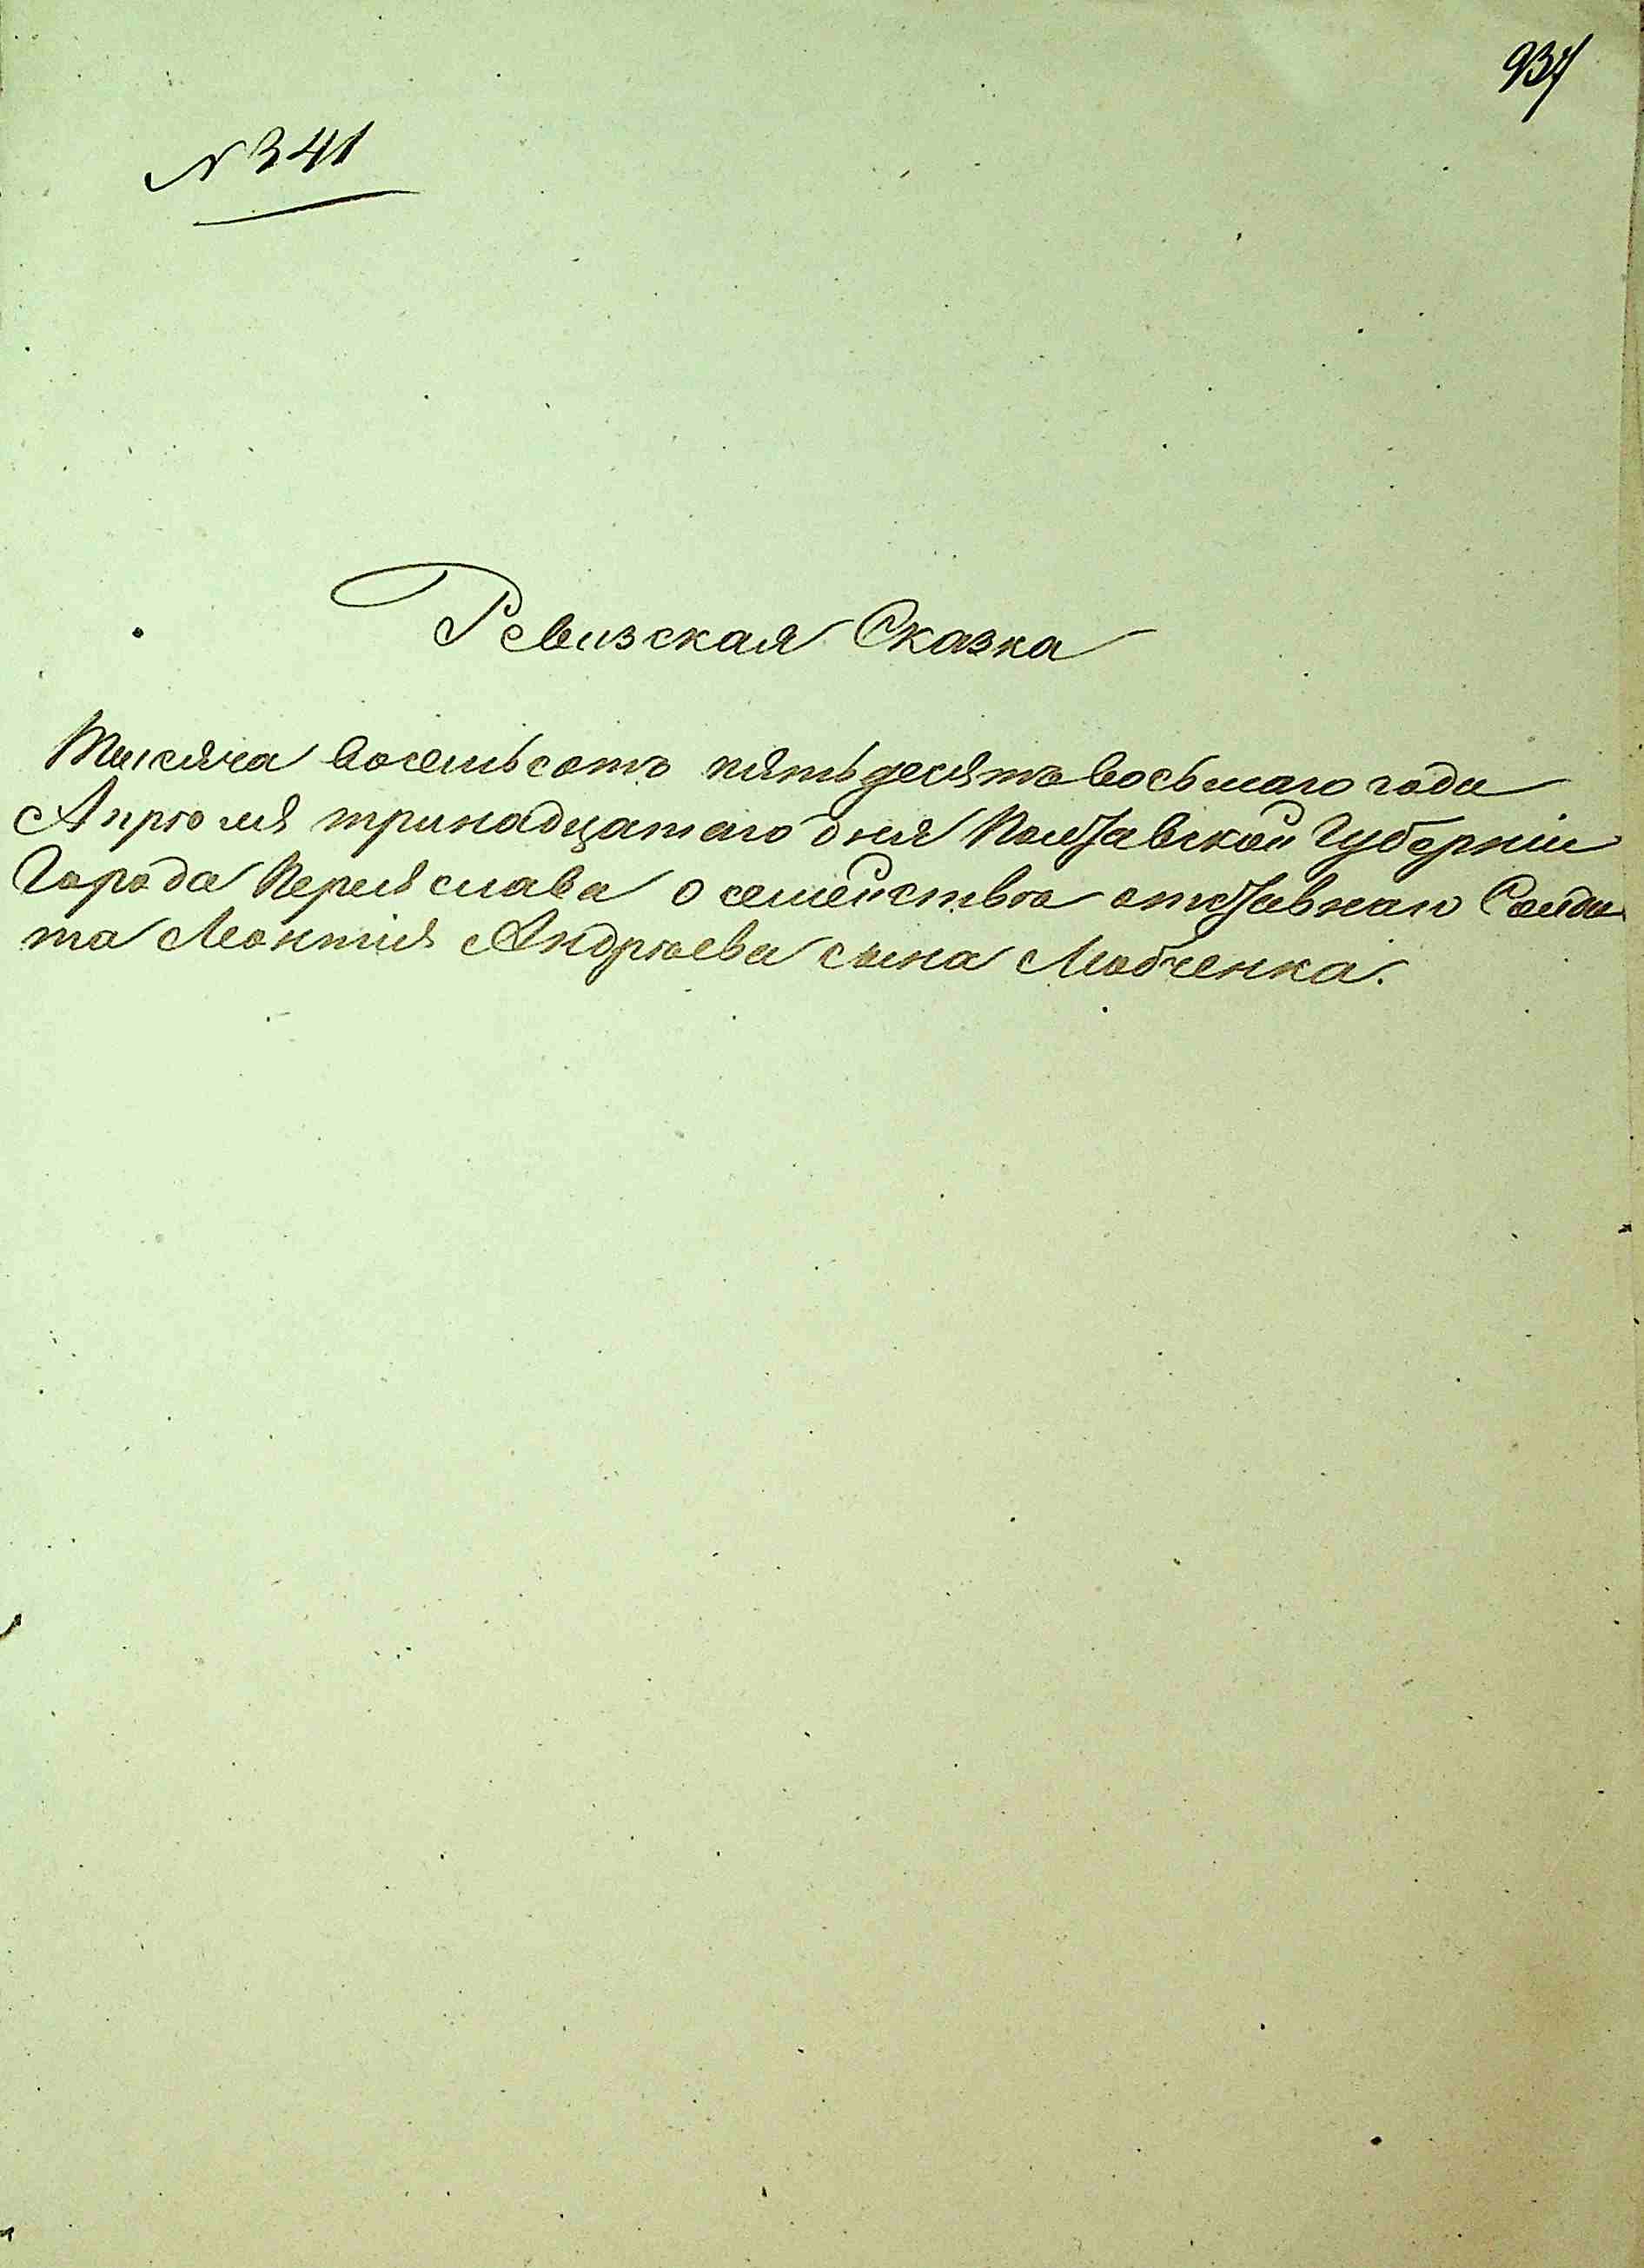 937
№ 341
Ревизская Сказка
Тысяча восемьсотъ пятьдесятъ восьмаго года
Апрѣля тринадцатаго дня Полтавской Губерніи
Города Переяслава о семействѣ отставнаго Солда
та Леонтія Андрѣева сына Любченка.